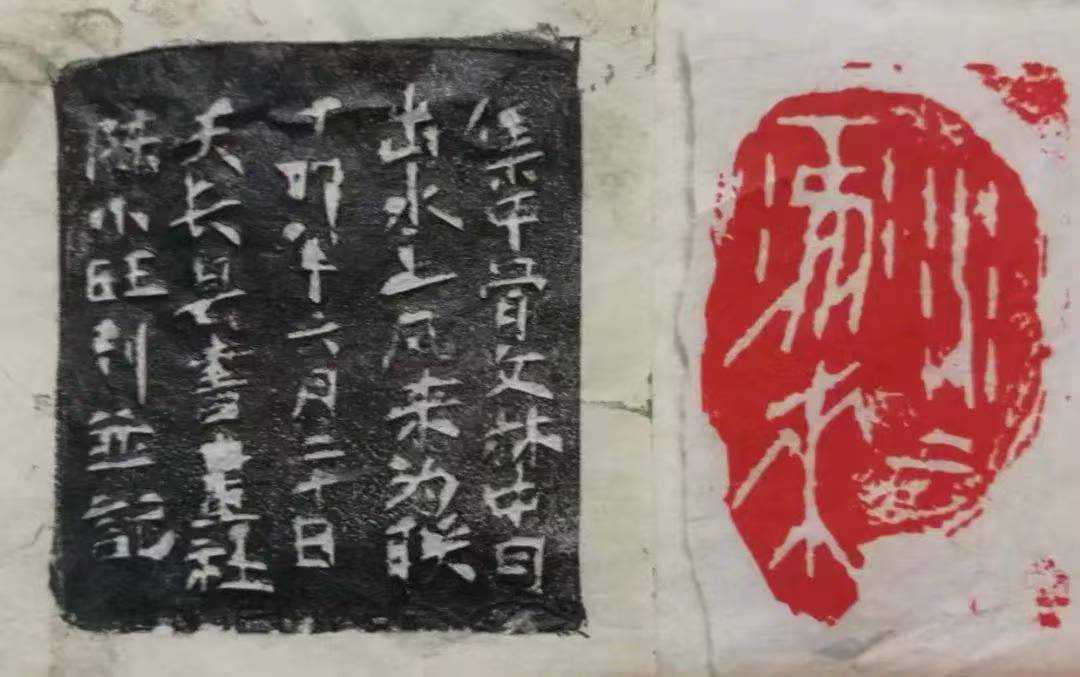 集甲骨文林中日
出水上风来为联
丁卯年六月二十日
天长县書畫社
陈小旺刊並記
水上
風来